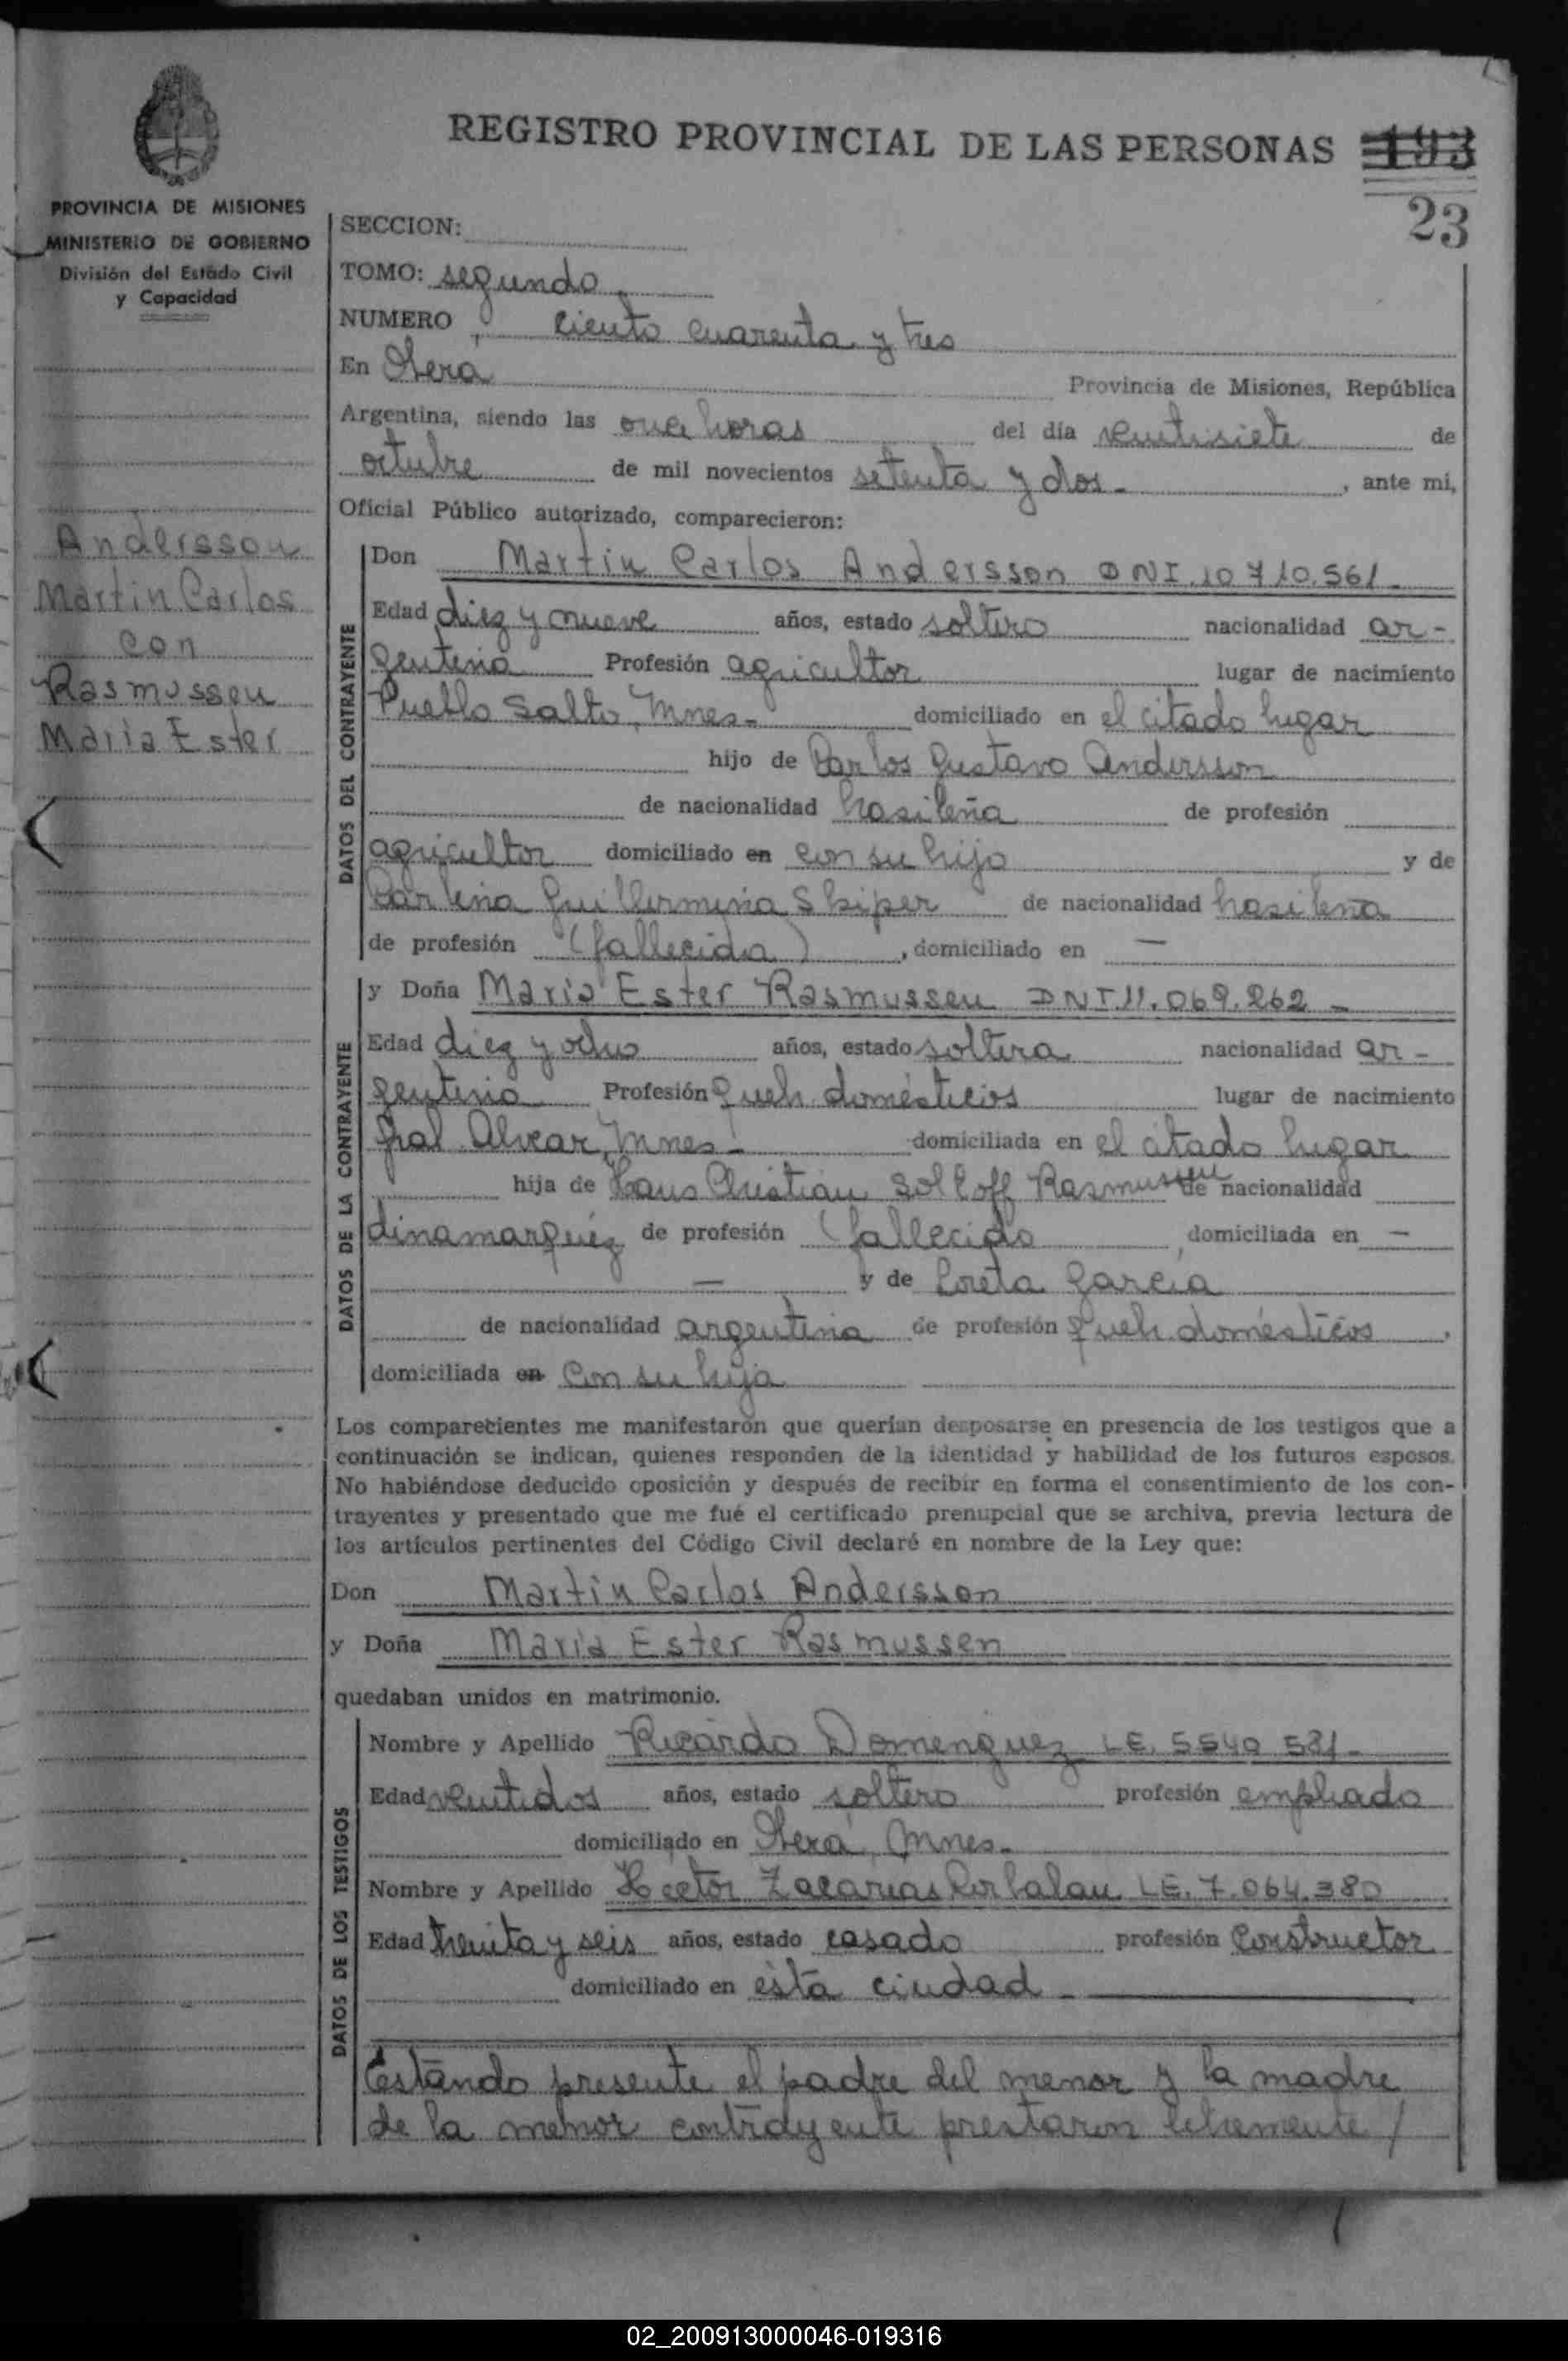 REGISTRO PROVINCIAL DE LAS PERSONAS 193
23
PROVINCIA DE MISIONES
MINISTERIO DE GOBIERNO
División del Estado Civil
y Capacidad
Andersson
Martin Carlos
con
Rasmussen
Maria Ester
SECCION:
TOMO: segundo
NUMERO ciento cuarenta y tres
En Oberá Provincia de Misiones, República
Argentina, siendo las once horas del día veintisiete de
octubre de mil novecientos setenta y dos - , ante mí,
Oficial Público autorizado, comparecieron:
DATOS DEL CONTRAYENTE
Don Martin Carlos Andersson DNI. 10 710.561 -
Edad diez y nueve años, estado soltero nacionalidad ar-
gentina Profesión agricultor lugar de nacimiento
Pueblo Salto, Mnes- domiciliado en el citado lugar
hijo de Carlos Gustavo Andersson
de nacionalidad brasileña de profesión
agricultor domiciliado en con su hijo y de
Carlina Guillermina Skiper de nacionalidad brasileña
de profesión (fallecida) , domiciliado en —
DATOS DE LA CONTRAYENTE
y Doña Maria Ester Rasmussen DNI. 11.069.262 -
Edad diez y ocho años, estado soltera nacionalidad ar-
gentina Profesión queh. domésticos lugar de nacimiento
Gral Alvear, Mnes- domiciliada en el citado lugar
hija de Hans Christian Rasmussen de nacionalidad
dinamarquéz de profesión (fallecido domiciliada en —
— y de Loreta Garcia
de nacionalidad argentina de profesión queh. domésticos ,
domiciliada en con su hija
Los comparecientes me manifestaron que querían desposarse en presencia de los testigos que a
continuación se indican, quienes responden de la identidad y habilidad de los futuros esposos.
No habiéndose deducido oposición y después de recibir en forma el consentimiento de los con-
trayentes y presentado que me fué el certificado prenupcial que se archiva, previa lectura de
los artículos pertinentes del Código Civil declaré en nombre de la Ley que:
Don Martin Carlos Andersson
y Doña Maria Ester Rasmussen
quedaban unidos en matrimonio.
DATOS DE LOS TESTIGOS
Nombre y Apellido Ricardo Domenguez LE. 5540 521-
Edad veintidos años, estado soltero profesión empleado
domiciliado en Oberá, Mnes-
Nombre y Apellido Hector Zacarias LE. 7.064.380
Edad treinta y seis años, estado casado profesión constructor
domiciliado en ésta ciudad -
Estando presente el padre del menor y la madre
de la menor contrayente prestaron libremente /
02_200913000046-019316